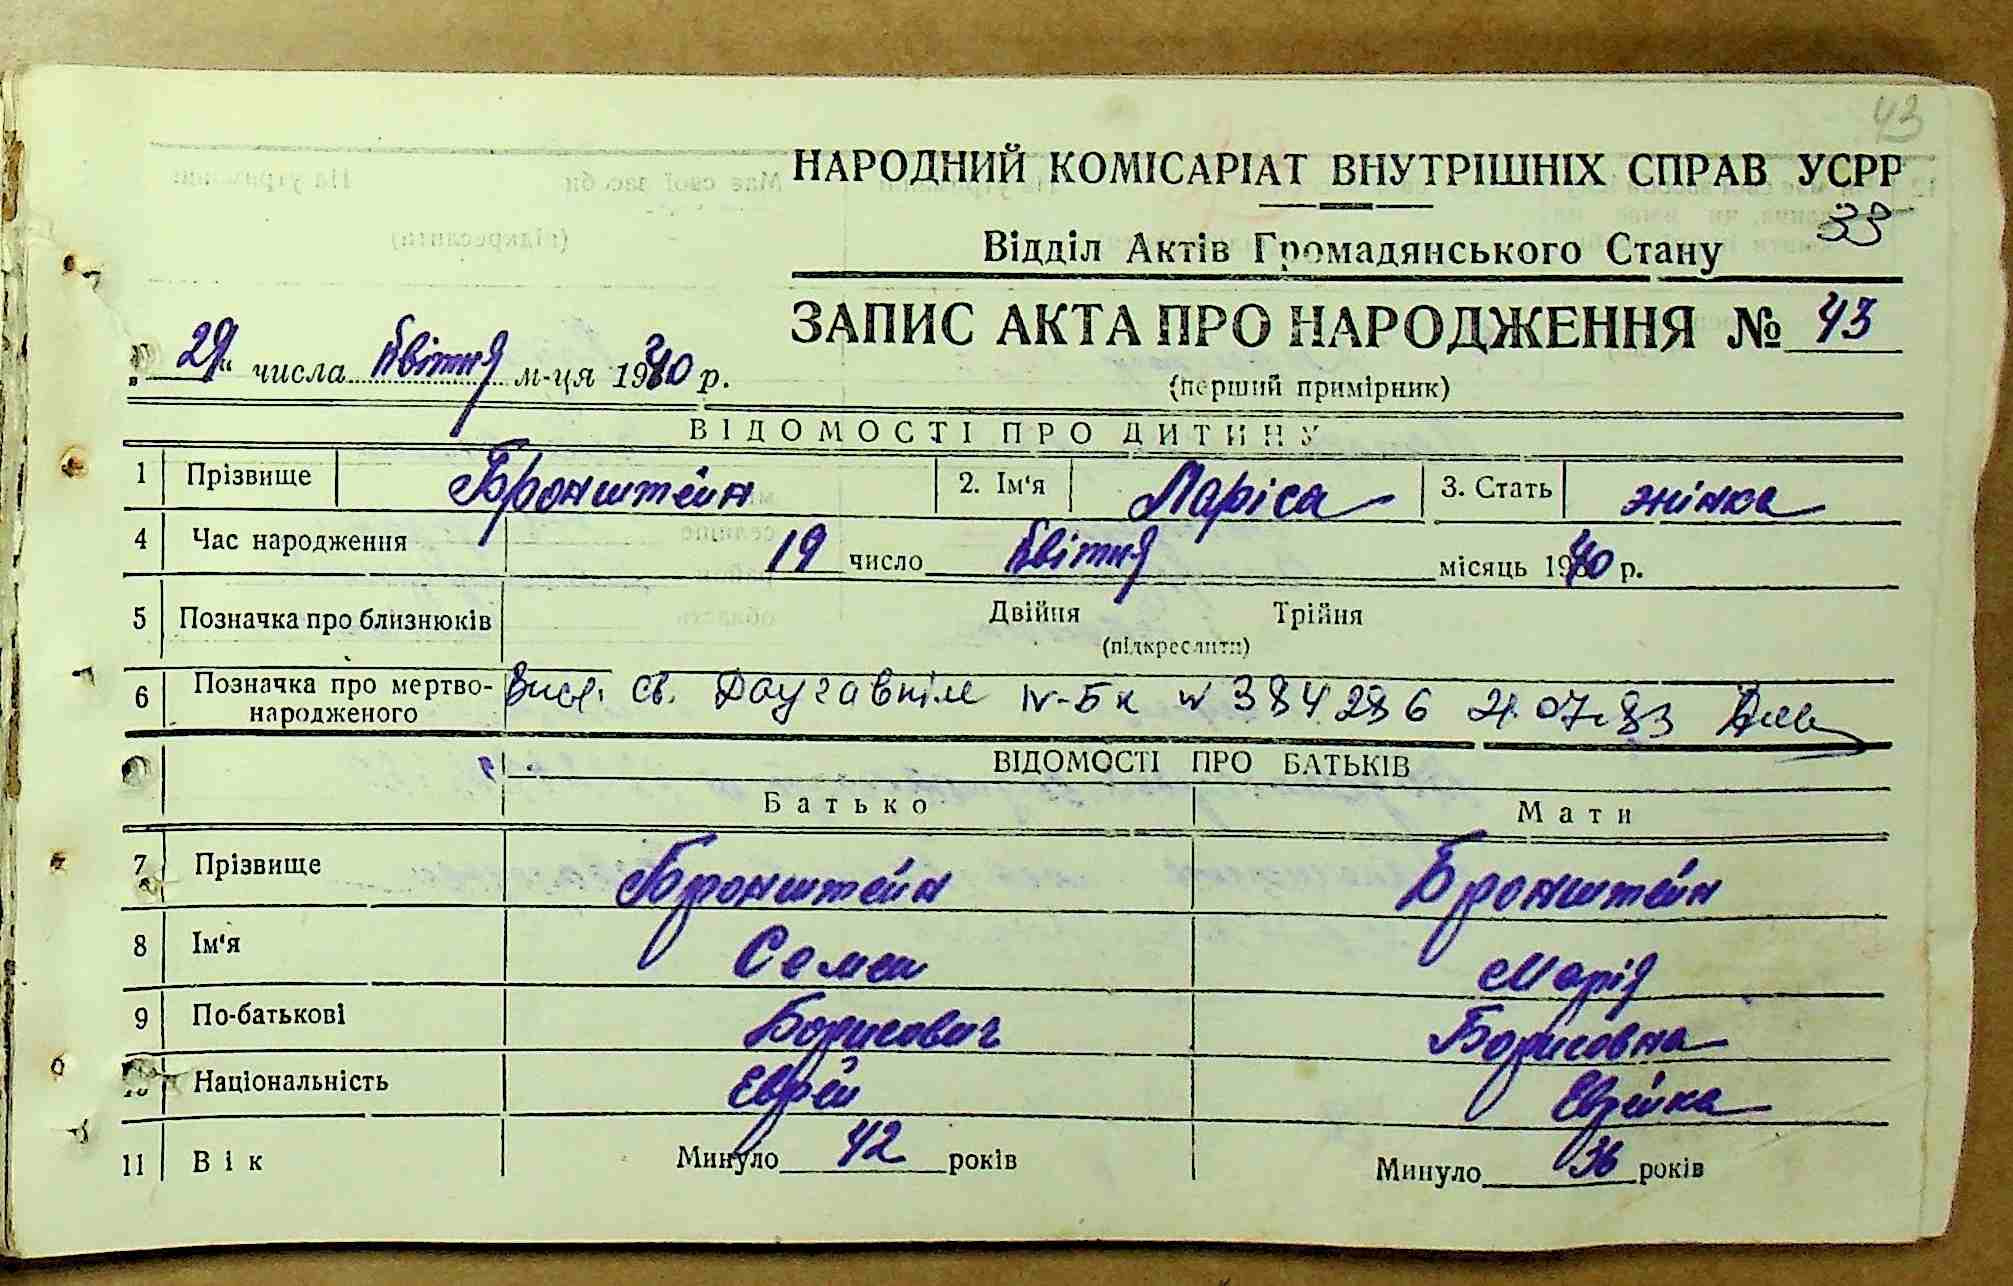 43
НАРОДНИЙ КОМІСАРІАТ ВНУТРІШНІХ СПРАВ УСРР
33
Відділ Актів Громадянського Стану
ЗАПИС АКТА ПРО НАРОДЖЕННЯ № 43
„29“ числа Квітня м-ця 1940 р.
(перший примірник)
ВІДОМОСТІ ПРО ДИТИНУ
1 Прізвище Бронштейн 2. Ім'я Лариса 3. Стать жінка
4 Час народження 19 число Квітня місяць 1940 р.
5 Позначка про близнюків Двійня Трійня
(підкреслити)
6 Позначка про мертво-
народженого
св. Даугавпілс IV-БК № 384286 21.07.83
ВІДОМОСТІ ПРО БАТЬКІВ
Батько Мати
7 Прізвище Бронштейн Бронштейн
8 Ім'я Семен Марія
9 По-батькові Борисович Борисовна
10 Національність Еврей Еврейка
11 Вік Минуло 42 років Минуло 36 років